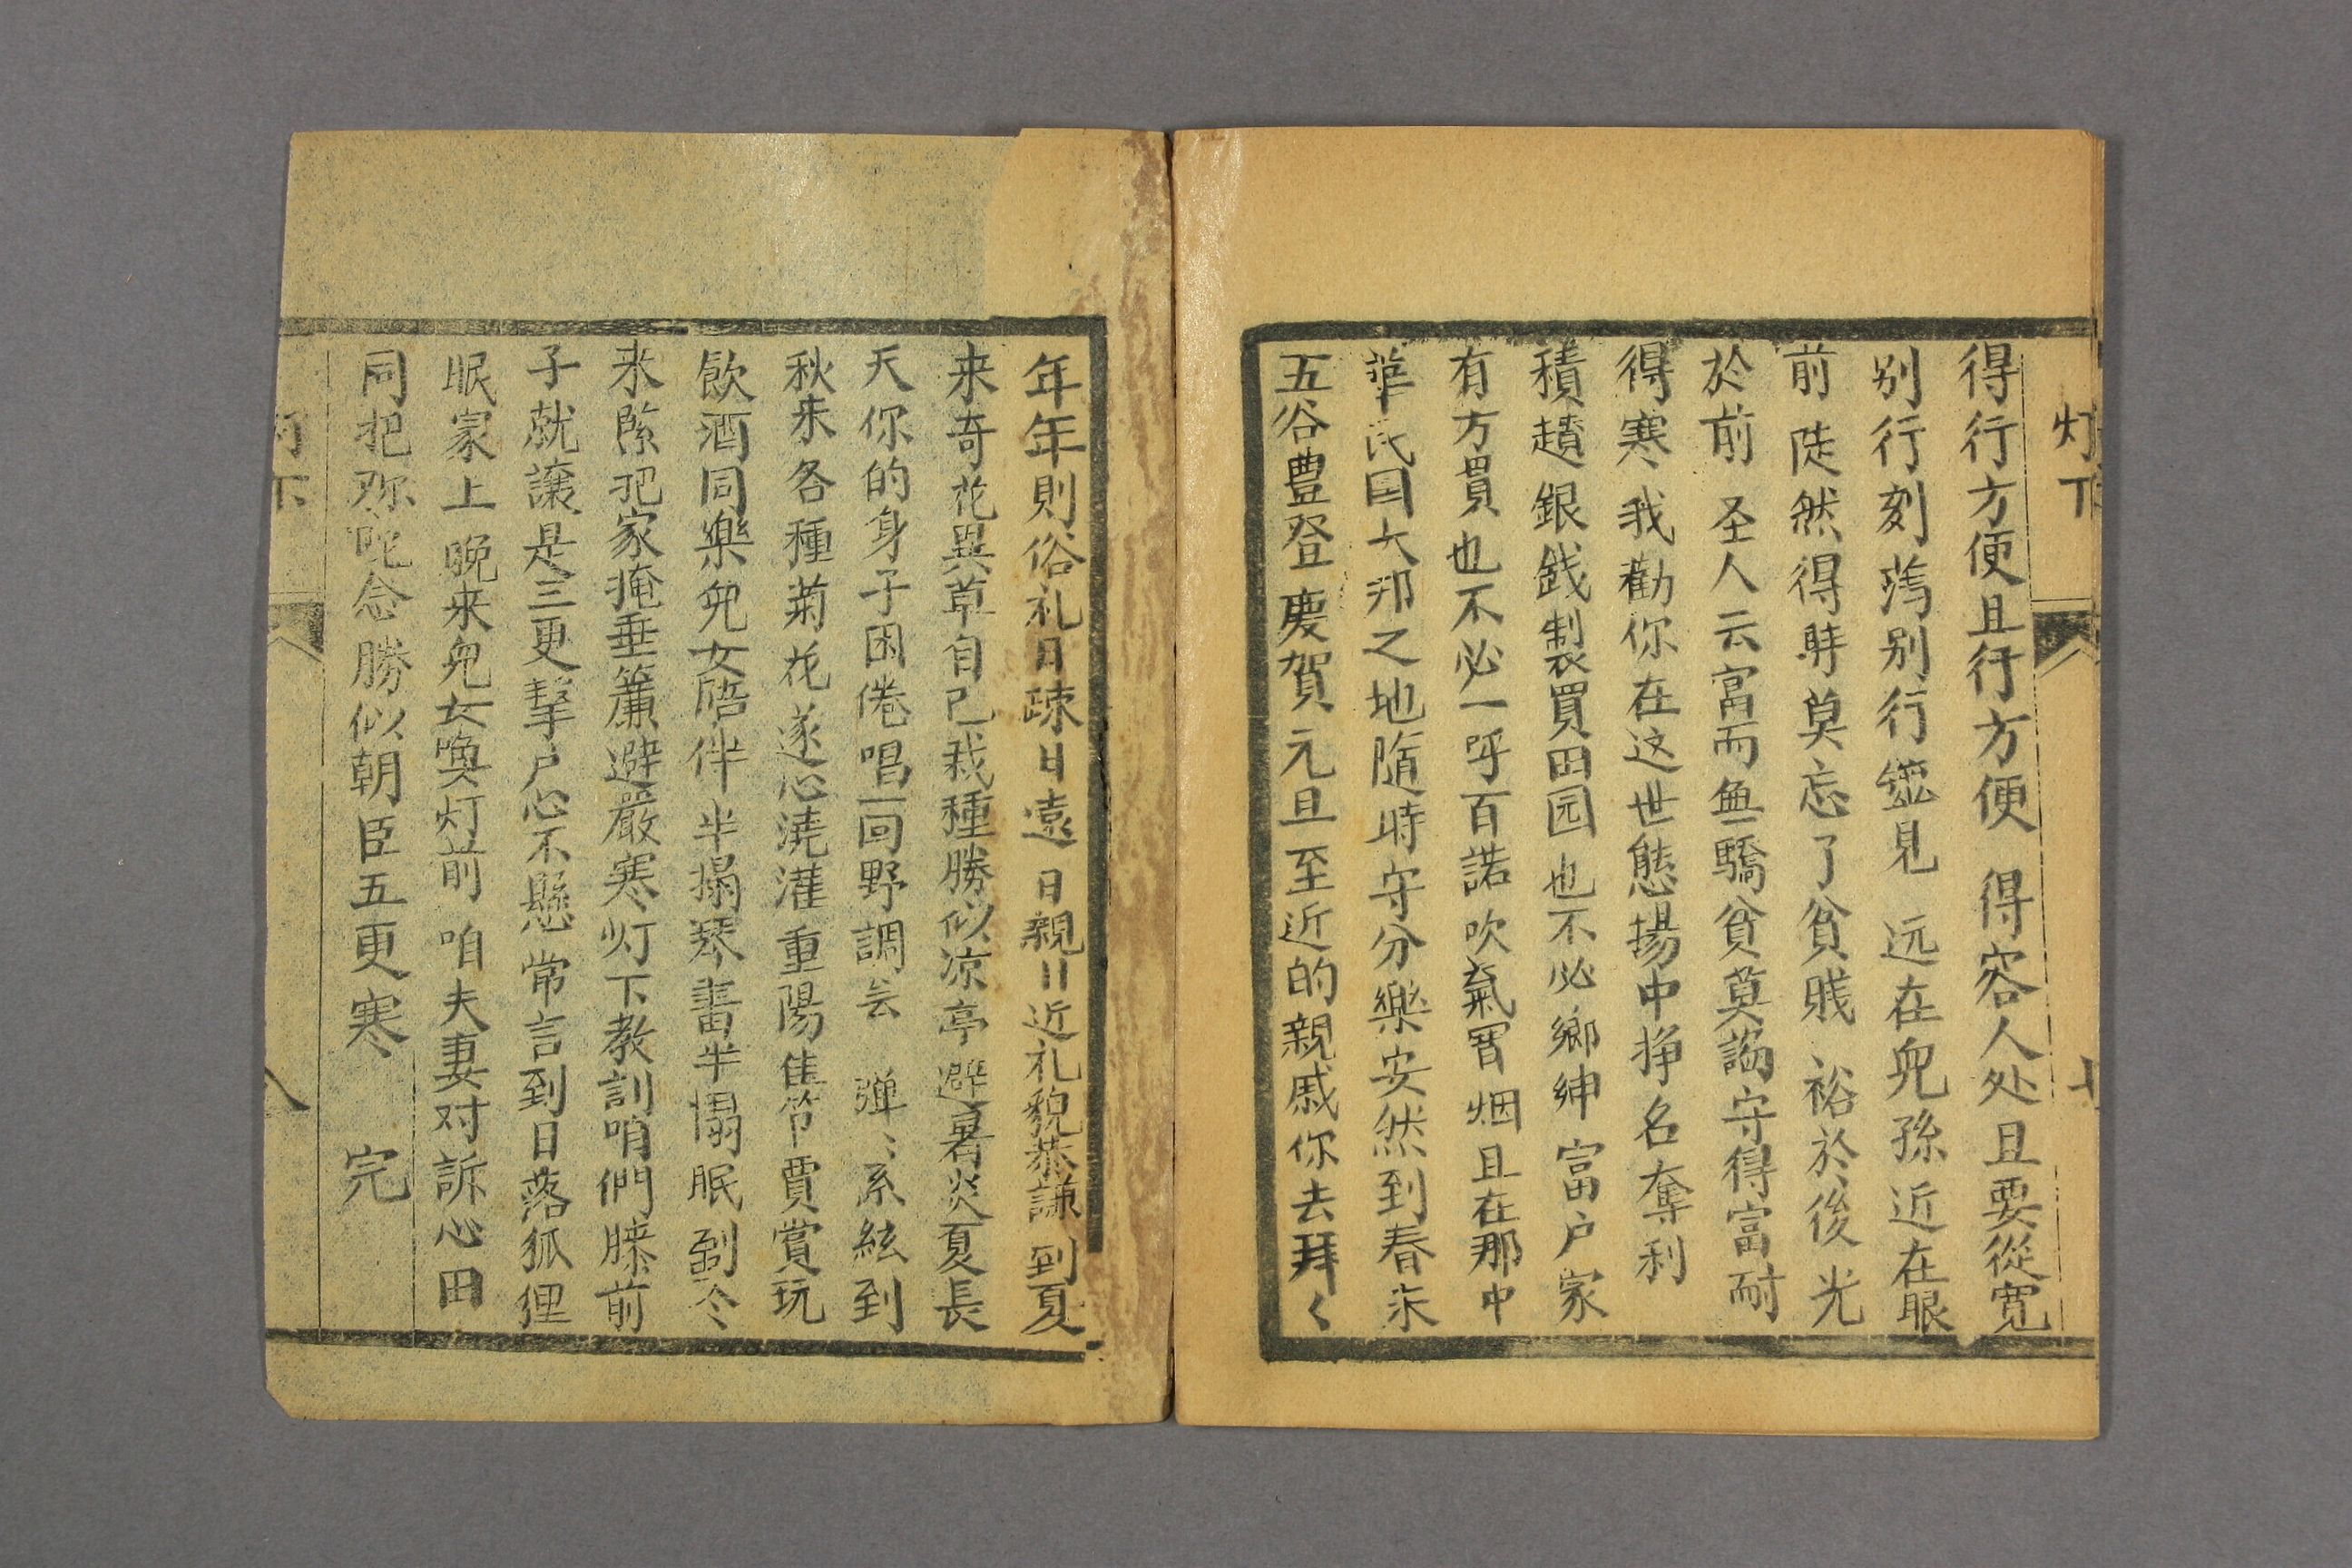 灯下
七
得行方便且行方便 得容人处且要從寬
别行刻薄别行鏗見 远在兒孫近在眼
前 陡然得時莫忘了貧賤 裕於後光
於前 圣人云富而無驕貧莫諂守得富耐
得寒 我勸你在这世態揚中挣名奪利
積趲銀錢製買田园也不必鄉紳富户家
有方買也不必一呼百諾吹氣冒烟且在那中
華民国大邦之地隨時守分樂安然到春来
五谷豊登慶賀元旦至近的親戚你去拜く
年年年則俗礼日疎日遠日親日近礼貌恭謙到夏
来奇花異草自己栽種勝似凉亭避暑炎夏長
天你的身子困倦唱一回野調 弹、系絃到
秋来各種菊花遂心澆灌重陽佳节賈賞玩
飲酒同樂兒女陪伴半搨琴書半榻眠到冬
来 把家掩垂簾避嚴寒灯下教訓咱們膝前
子就讓是三更擊户心不懸常言到日落狐狸
眠家上晚来兒女喚灯前咱夫妻对訴心田
同把弥陀念勝似朝臣五更寒 完
灯下
八